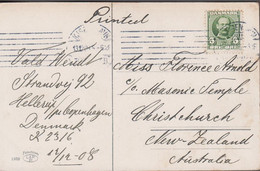 Printed
DANMARK
5
Vald Wendt
Strandvej 92
Hellerup
Copenhagen
Denmark
12/12-08
Miss Florence Arnold
c/o Masonic Temple
Christchurch
New-Zealand
Australia